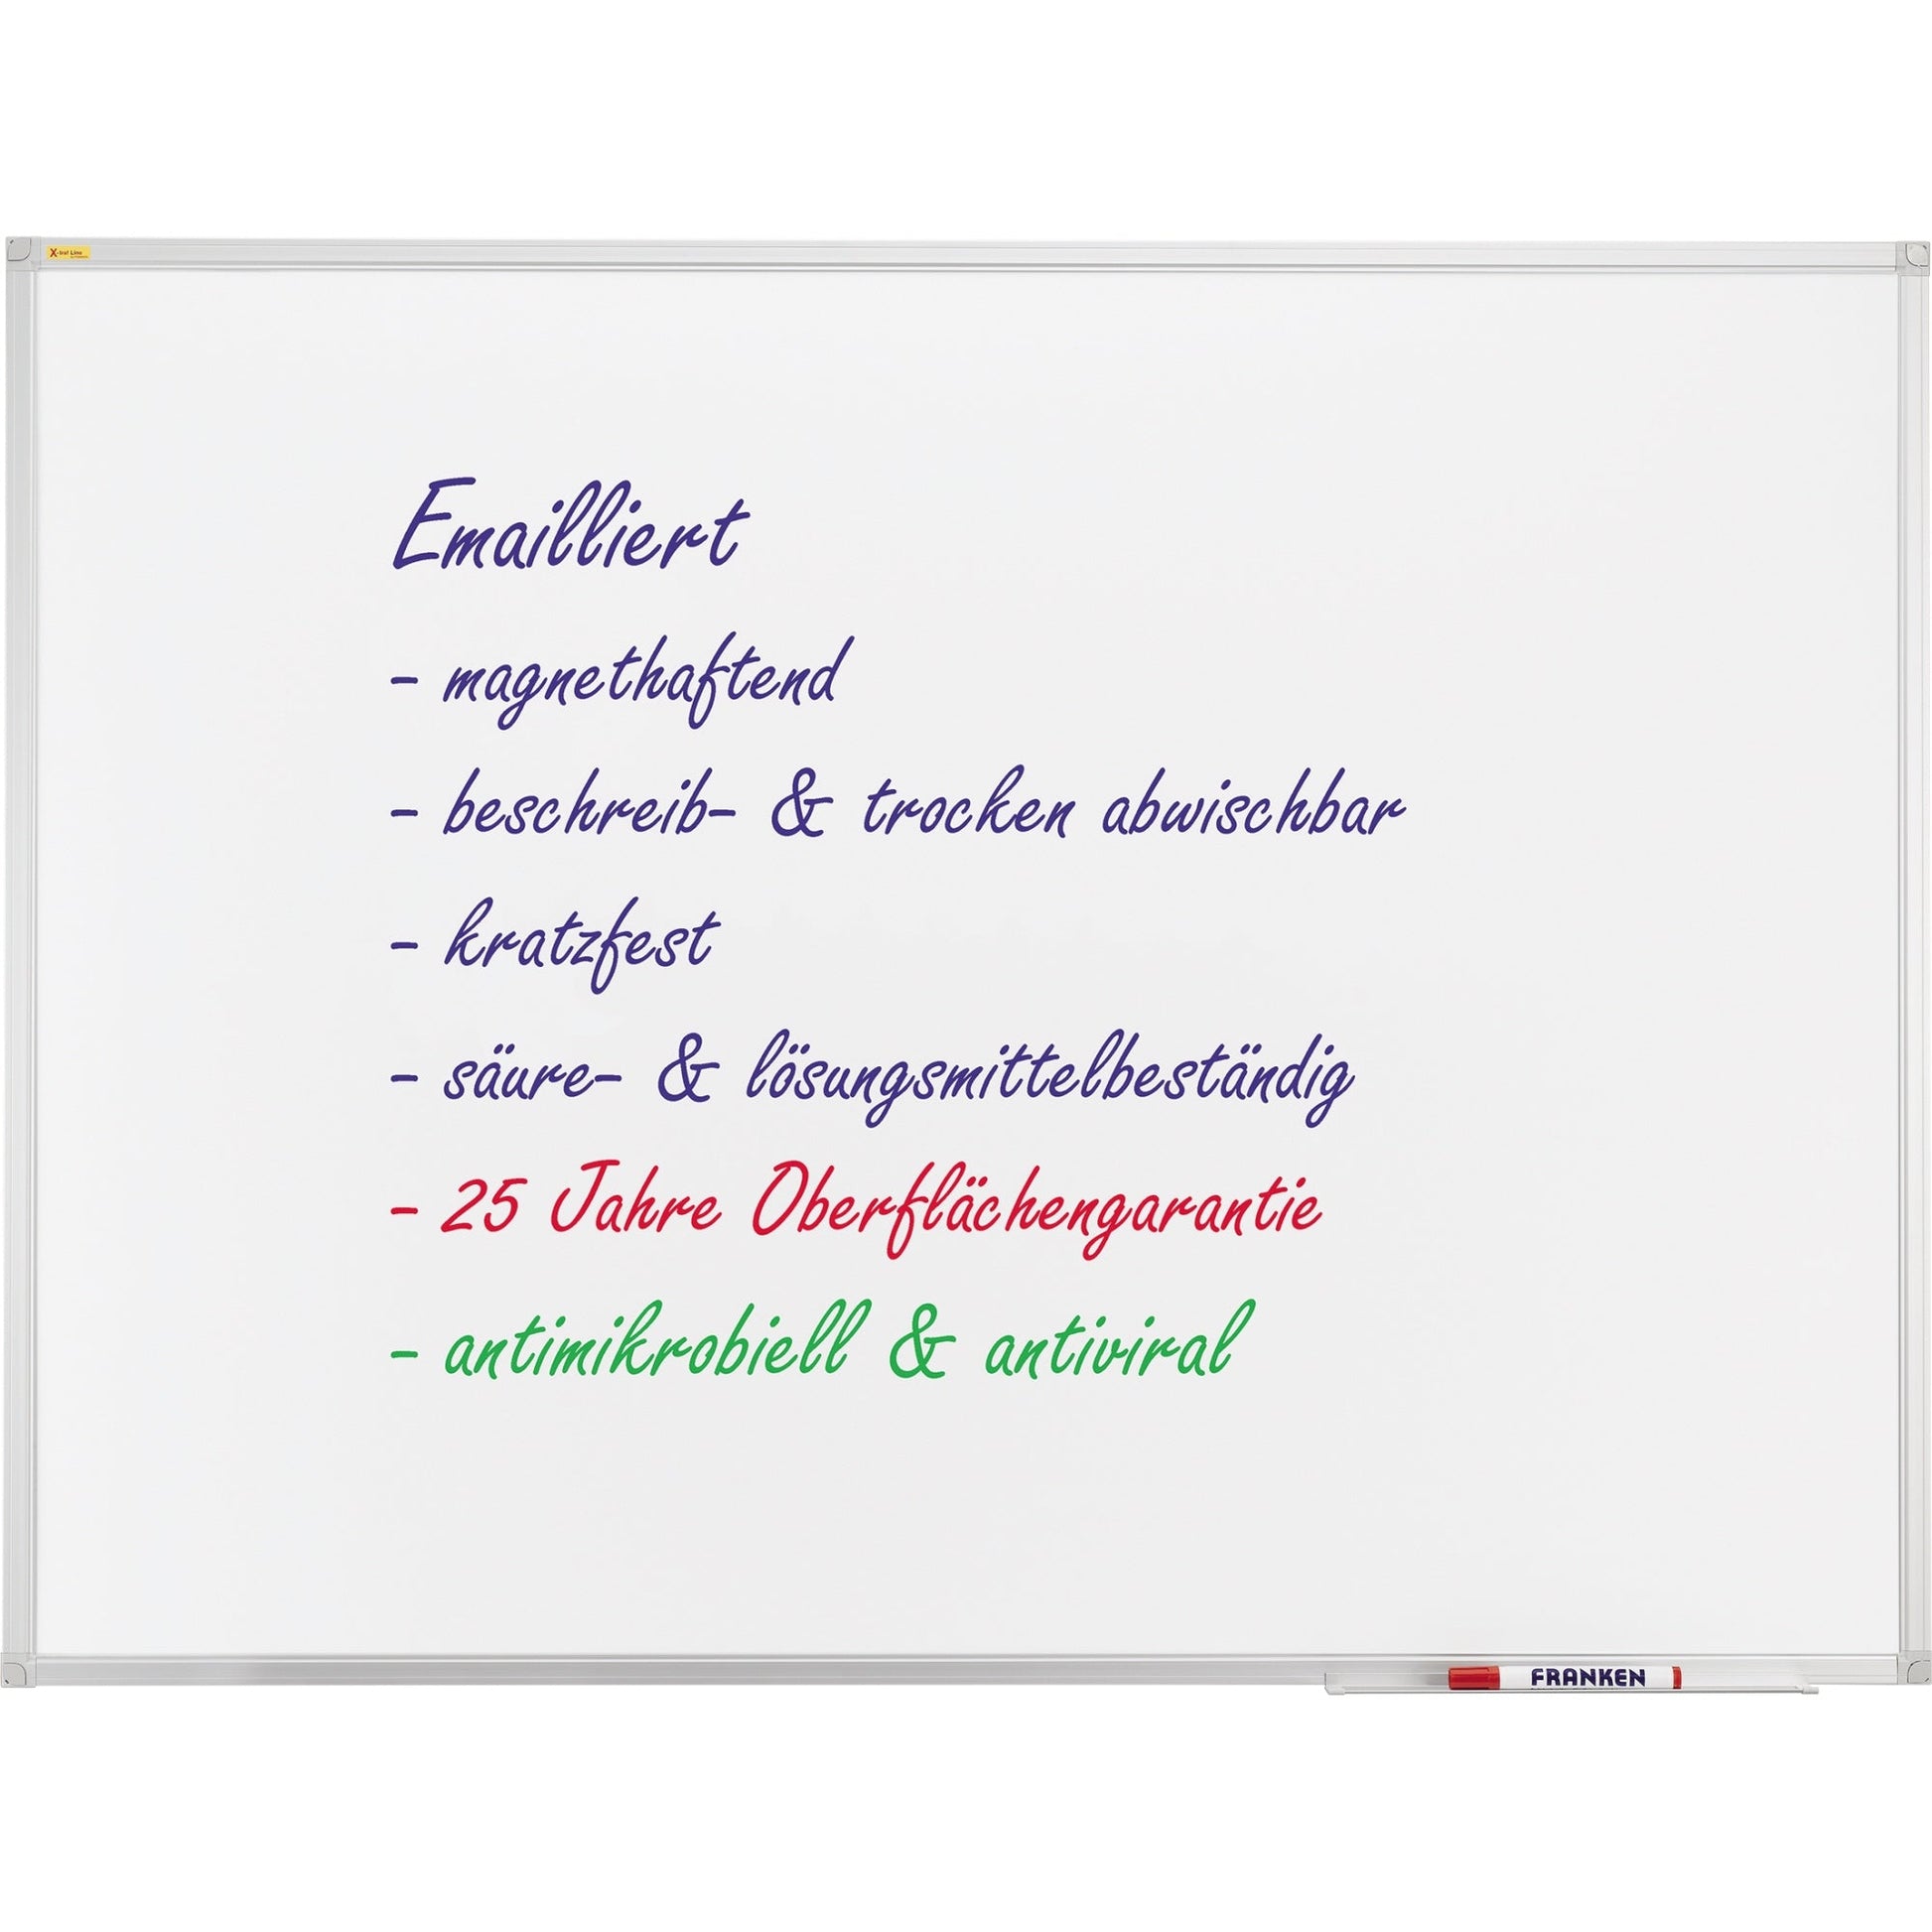 X-tra! Line
Emailliert
- magnethaftend
- beschreib- & trocken abwischbar
- kratzfest
- säure- & lösungsmittelbeständig
- 25 Jahre Oberflächengarantie
- antimikrobiell & antiviral
FRANKEN